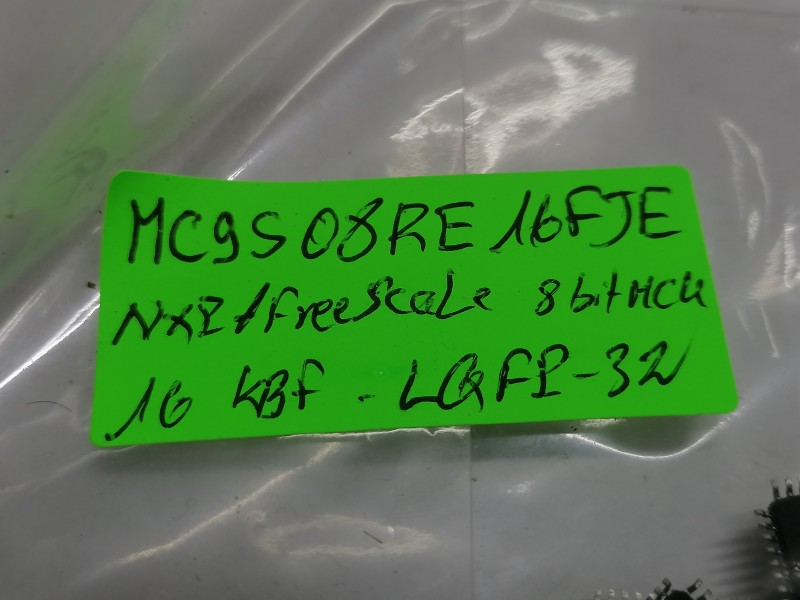 MC9S08RE16FJE
NXP/freescale 8bit MCU
16 KBF - LQFP-32